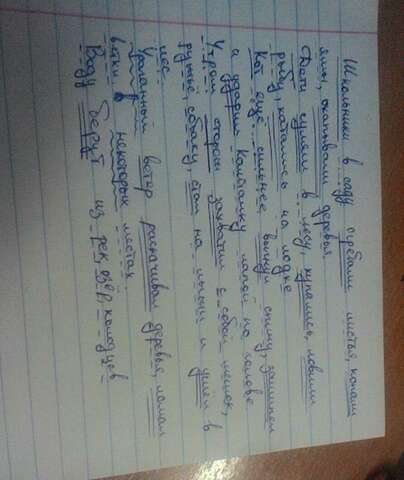 Школьники в саду сгребали листья, копали
ямы, окапывали деревья.
Дети гуляли в лесу, купались, ловили
рыбу, катались на лодке
Кот ещё сильнее выгнул спину, зашипел
и ударил Каштанку лапой по голове
Утром сторож захватил с собой мешок,
ружьё, собаку, стал на лыжи и ушёл в
лес.
Ураганный ветер раскачивал деревья, ломал
ветки в некоторых местах.
Воду берут из рек, озёр, колодцев